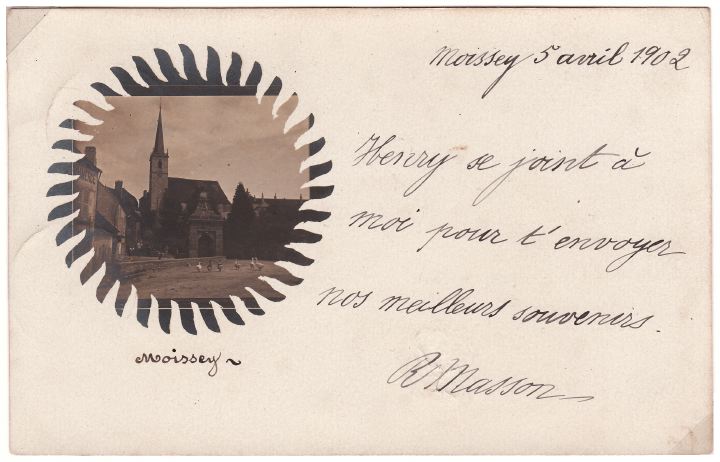 Moissey 5 avril 1902
Henry se joint à
moi pour t'envoyer
nos meilleurs souvenirs.
R Masson
Moissey